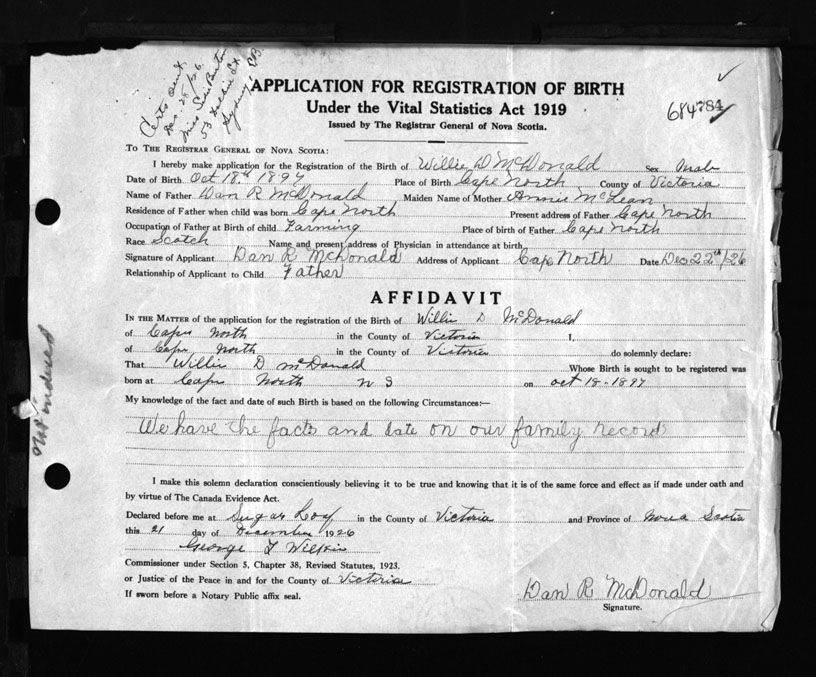 Certs sent
Dec. 28/26.
Miss
53
Sydney, C.B.
APPLICATION FOR REGISTRATION OF BIRTH
Under the Vital Statistics Act 1919
Issued by The Registrar General of Nova Scotia.
684784
TO THE REGISTRAR GENERAL OF NOVA SCOTIA:
I hereby make application for the Registration of the Birth of Willie D McDonald Sex Male
Date of Birth Oct 18th 1897 Place of Birth Cape North County of Victoria
Name of Father Dan R McDonald Maiden Name of Mother Annie McLean
Residence of Father when child was born Cape North Present address of Father Cape North
Occupation of Father at Birth of child Farming Place of birth of Father Cape North
Race Scotch Name and present address of Physician in attendance at birth
Signature of Applicant Dan R McDonald Address of Applicant Cape North Date Dec 22th/26
Relationship of Applicant to Child Father
AFFIDAVIT
IN THE MATTER of the application for the registration of the Birth of Willie D McDonald
of Cape North in the County of Victoria I,
of Cape North in the County of Victoria do solemnly declare:
That Willie D McDonald Whose Birth is sought to be registered was
born at Cape North N S on Oct 18-1897
My knowledge of the fact and date of such Birth is based on the following Circumstances:—
We have the facts and date on our family record
Not indexed
I make this solemn declaration conscientiously believing it to be true and knowing that it is of the same force and effect as if made under oath and
by virtue of The Canada Evidence Act.
Declared before me at Sugar Loaf in the County of Victoria and Province of Nova Scotia
this 21 day of December 1926
George T Wilkie
Commissioner under Section 5, Chapter 38, Revised Statutes, 1923.
or Justice of the Peace in and for the County of Victoria
If sworn before a Notary Public affix seal.
Dan R McDonald
Signature.